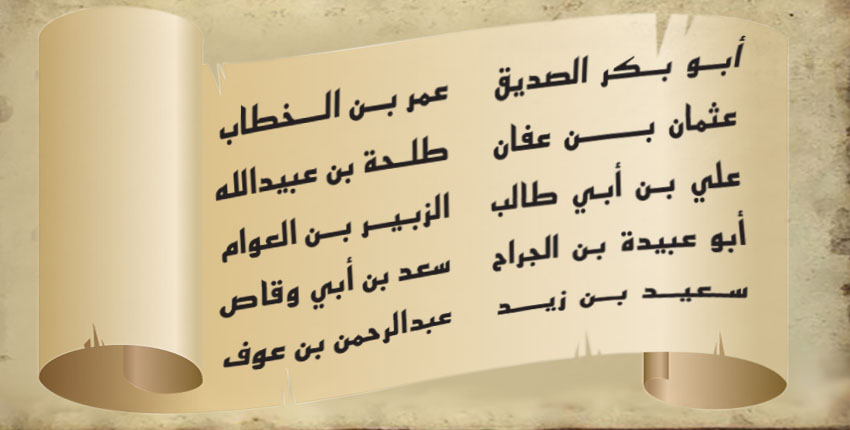 أبو بكر الصديق
عمر بن الخطاب
عثمان بن عفان
طلحة بن عبيدالله
علي بن أبي طالب
الزبير بن العوام
أبو عبيدة بن الجراح
سعد بن أبي وقاص
سعيد بن زيد
عبدالرحمن بن عوف